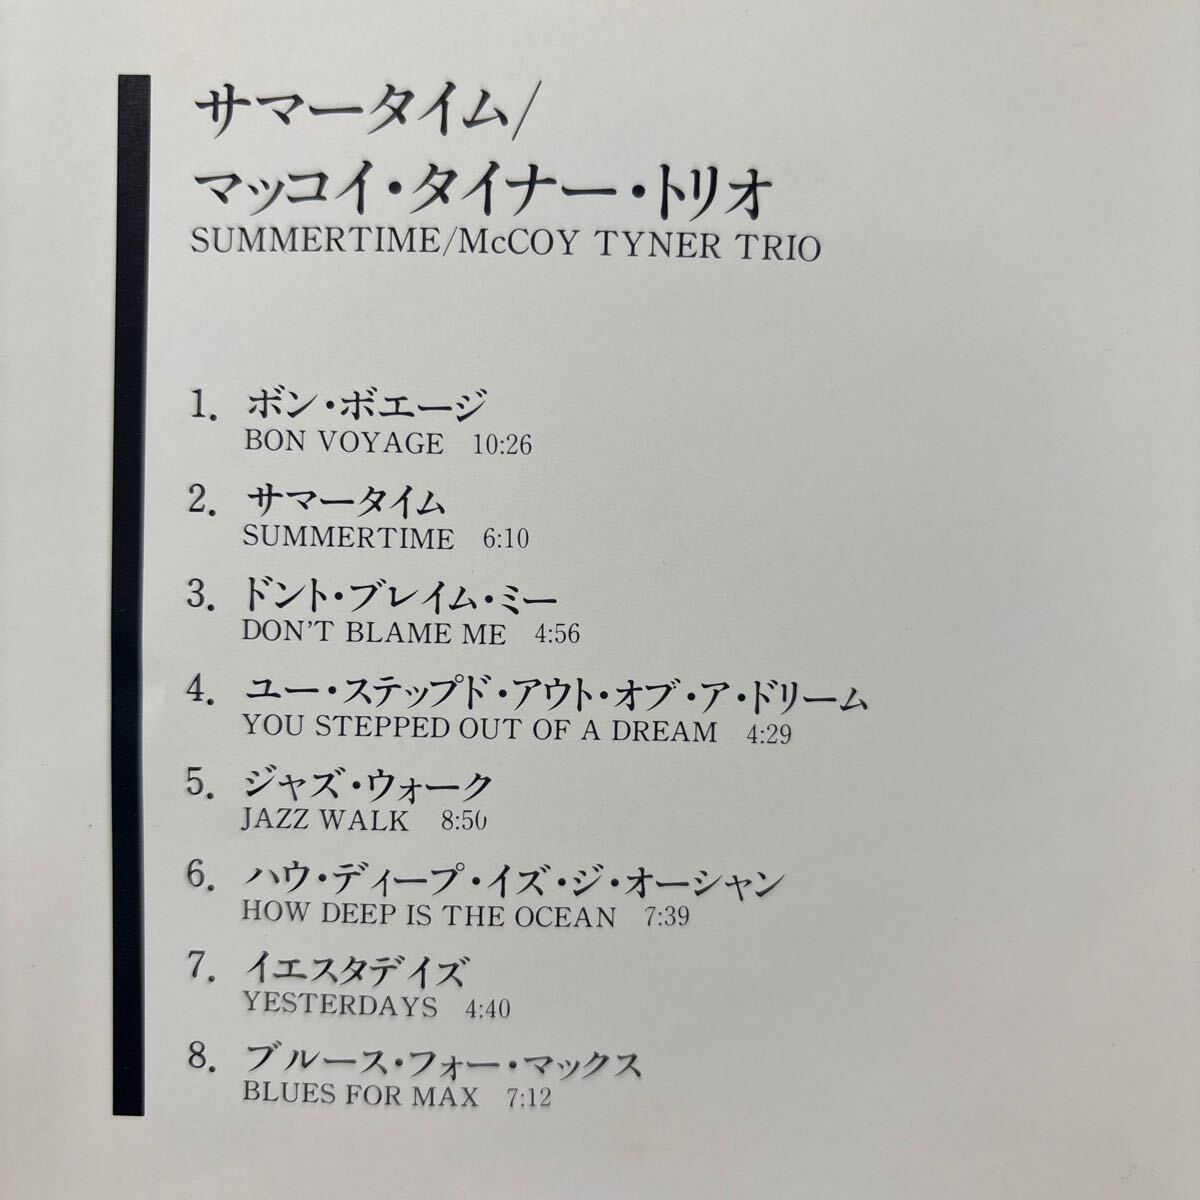 サマータイム/
マッコイ・タイナー・トリオ
SUMMERTIME/McCOY TYNER TRIO
1. ボン・ボエージ
BON VOYAGE 10:26
2. サマータイム
SUMMERTIME 6:10
3. ドント・ブレイム・ミー
DON'T BLAME ME 4:56
4. ユー・ステップド・アウト・オブ・ア・ドリーム
YOU STEPPED OUT OF A DREAM 4:29
5. ジャズ・ウォーク
JAZZ WALK 8:50
6. ハウ・ディープ・イズ・ジ・オーシャン
HOW DEEP IS THE OCEAN 7:39
7. イエスタデイズ
YESTERDAYS 4:40
8. ブルース・フォー・マックス
BLUES FOR MAX 7:12